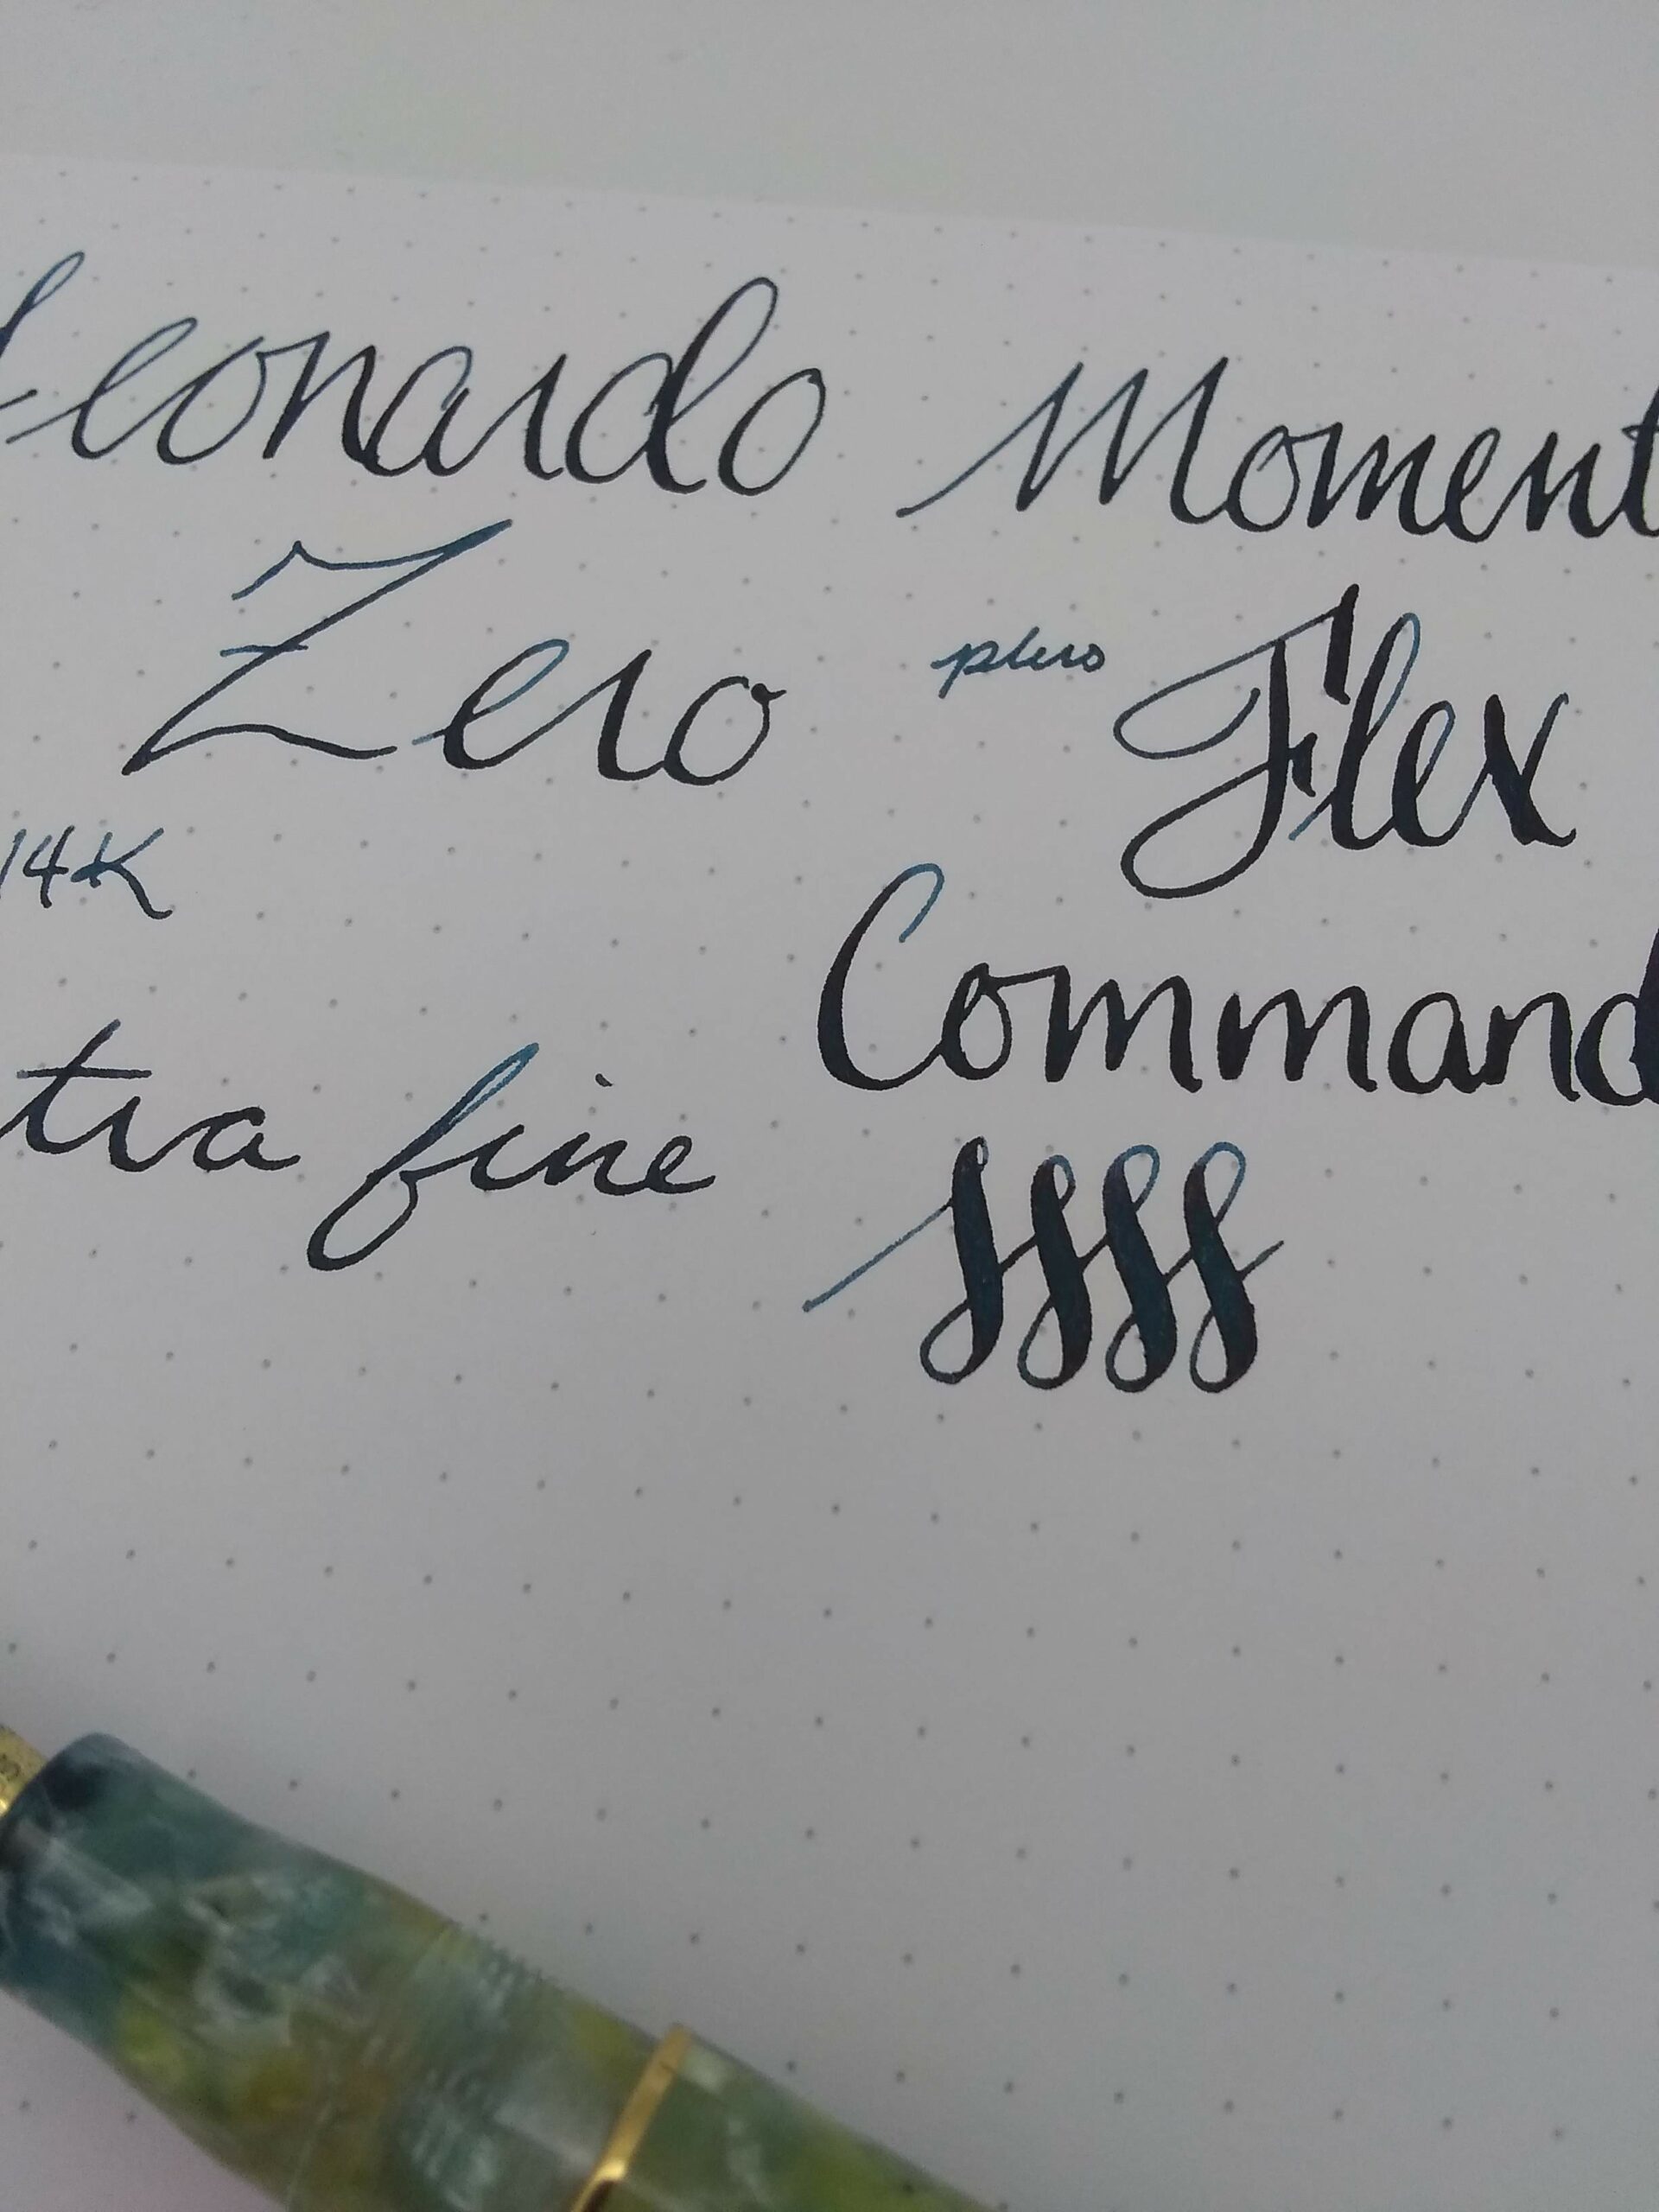 Leonardo Moment
Zero plus Flex
14K
Command
tra fine
ssss